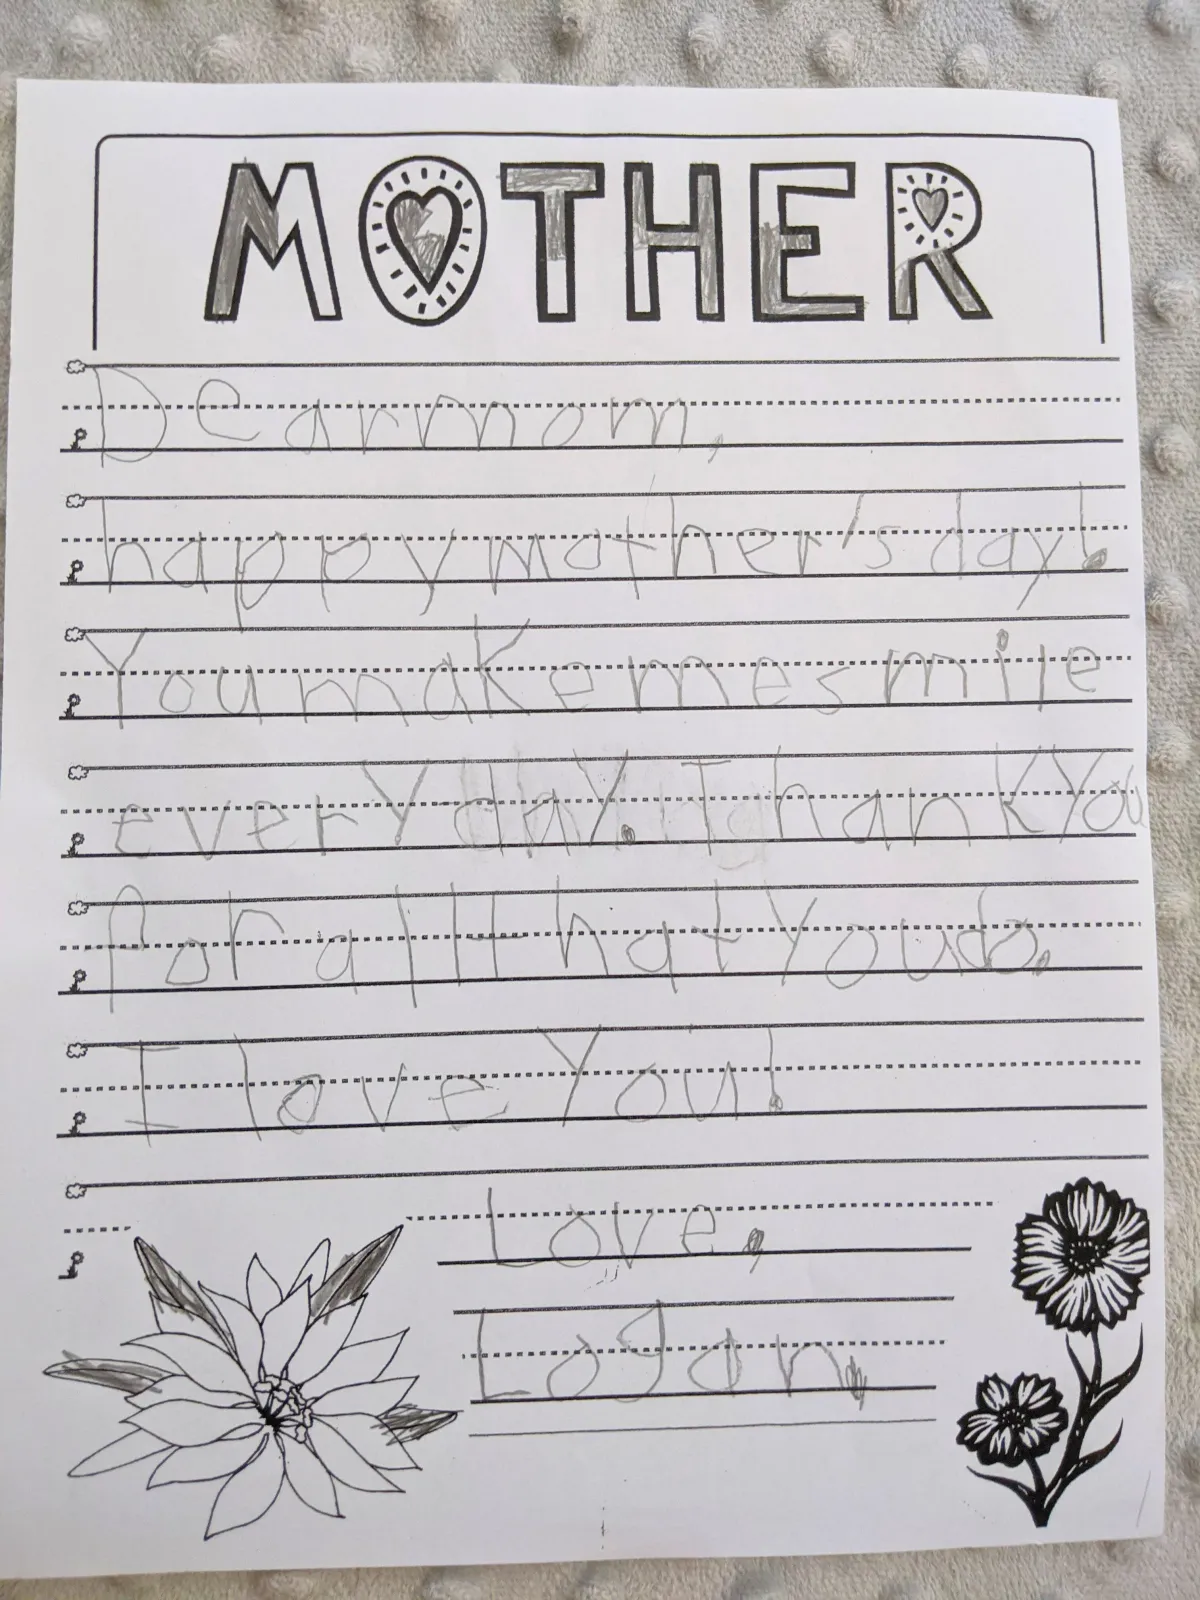 MOTHER
Dear mom,
happy mother's day!
You make me smile
every day. Thank You
for all that You do.
I love You!
Love,
Logan.